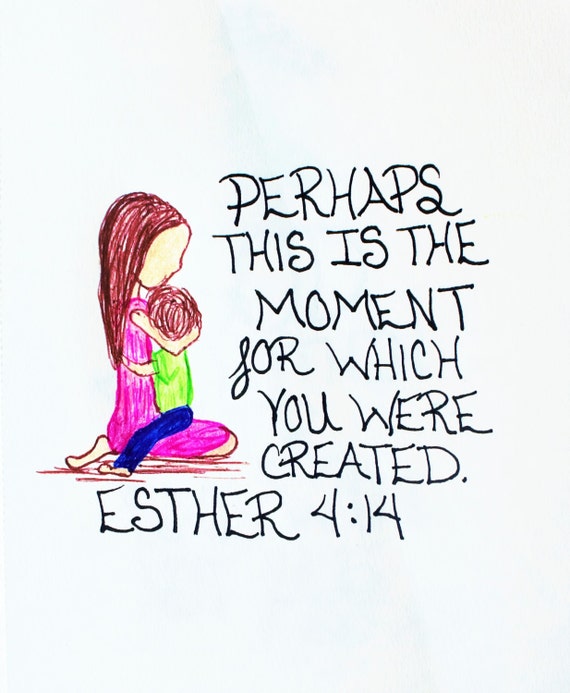 PERHAPS
THIS IS THE
MOMENT
FOR WHICH
YOU WERE
CREATED.
ESTHER 4:14